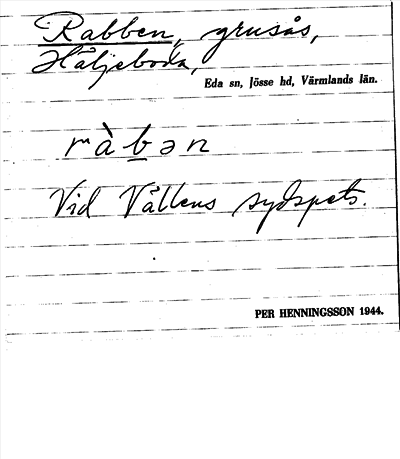 Rabben, grusås,
Häljeboda,
Eda sn, Jösse hd, Värmlands län.
ràbən
Vid Vällens sydspets.
PER HENNINGSSON 1944.